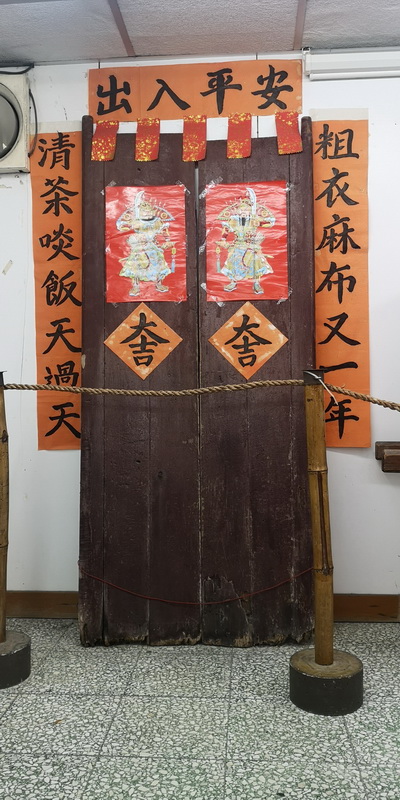 出入平安
粗衣麻布又一年
清茶啖飯天過天
大吉
大吉